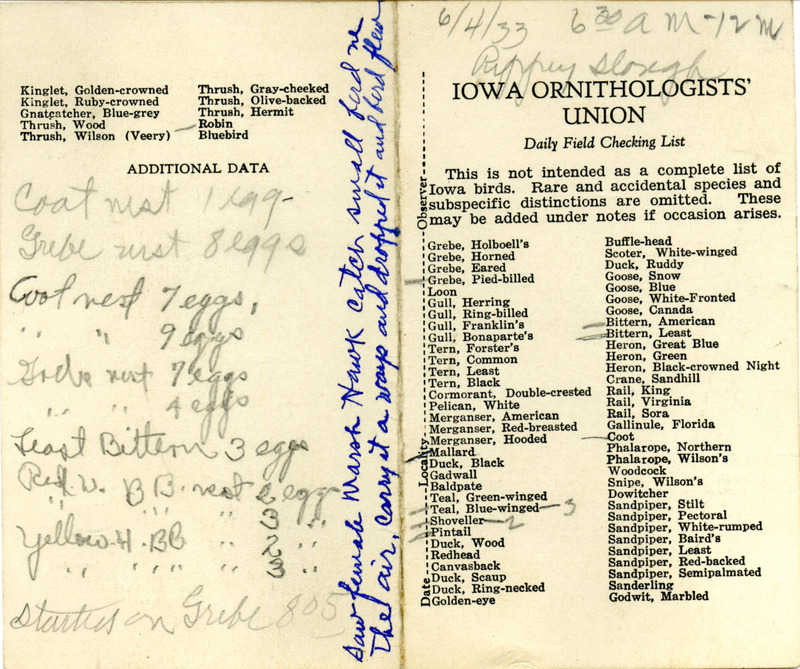 Kinglet, Golden-crowned
Kinglet, Ruby-crowned
Gnatcatcher, Blue-grey
Thrush, Wood
Thrush, Wilson (Veery)
Thrush, Gray-cheeked
Thrush, Olive-backed
Thrush, Hermit
Robin
Bluebird
ADDITIONAL DATA
Coot nest 1 egg
Grebe nest 8 eggs
Coot nest 7 eggs,
" " 9 eggs
Grebe nest 7 eggs
" " 4 eggs
Least Bittern 3 eggs
Red W. BB. nest 2 eggs
" " " " 3 "
Yellow H. BB 2 "
" " " " 3 "
on Grebe 805
Saw female Marsh Hawk catch small bird in
the air, carry it a ways and dropped it and bird flew
6/4/33 6 30 A M - 12 M
Rippey Slough
IOWA ORNITHOLOGISTS'
UNION
Daily Field Checking List
This is not intended as a complete list of
Iowa birds. Rare and accidental species and
subspecific distinctions are omitted. These
may be added under notes if occasion arises.
Date Locality Observer
Grebe, Holboell's
Grebe, Horned
Grebe, Eared
Grebe, Pied-billed
Loon
Gull, Herring
Gull, Ring-billed
Gull, Franklin's
Gull, Bonaparte's
Tern, Forster's
Tern, Common
Tern, Least
Tern, Black
Cormorant, Double-crested
Pelican, White
Merganser, American
Merganser, Red-breasted
Merganser, Hooded
Mallard
Duck, Black
Gadwall
Baldpate
Teal, Green-winged
Teal, Blue-winged — 3
Shoveller — 2
Pintail
Duck, Wood
Redhead
Canvasback
Duck, Scaup
Duck, Ring-necked
Golden-eye
Buffle-head
Scoter, White-winged
Duck, Ruddy
Goose, Snow
Goose, Blue
Goose, White-Fronted
Goose, Canada
Bittern, American
Bittern, Least
Heron, Great Blue
Heron, Green
Heron, Black-crowned Night
Crane, Sandhill
Rail, King
Rail, Virginia
Rail, Sora
Gallinule, Florida
Coot
Phalarope, Northern
Phalarope, Wilson's
Woodcock
Snipe, Wilson's
Dowitcher
Sandpiper, Stilt
Sandpiper, Pectoral
Sandpiper, White-rumped
Sandpiper, Baird's
Sandpiper, Least
Sandpiper, Red-backed
Sandpiper, Semipalmated
Sanderling
Godwit, Marbled